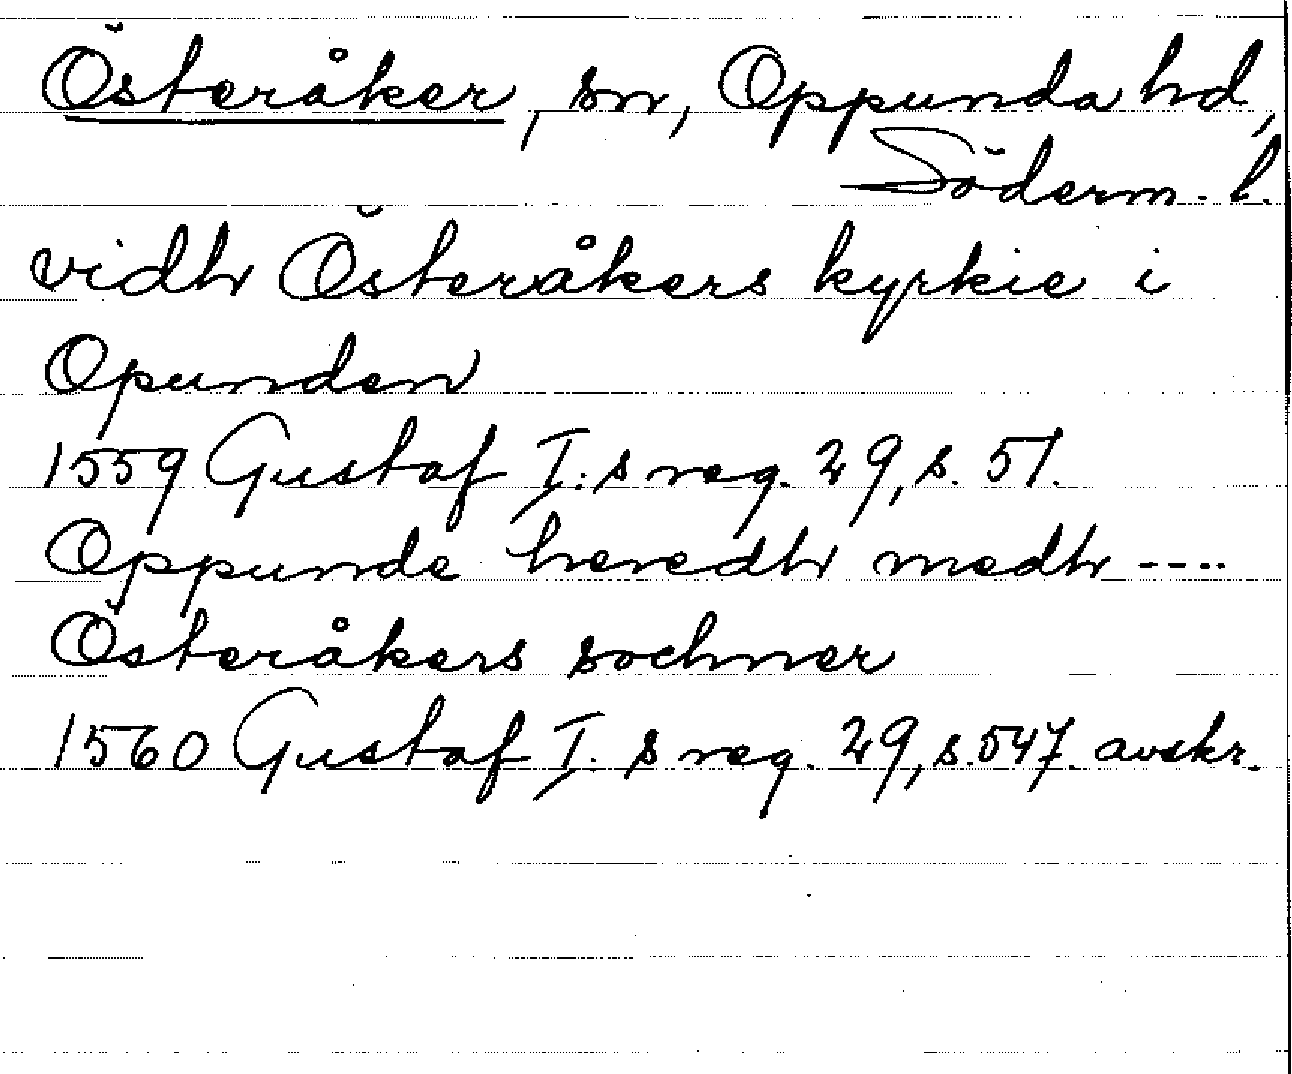 Österåker, sn, Oppunda hd,
Söderm. l.
vidh Österåkers kyrkie i
Opunden
1559 Gustaf I:s reg. 29, s. 51.
Oppunde heredh medh ----
Österåkers sochner
1560 Gustaf I. s reg. 29, s. 547. avskr.